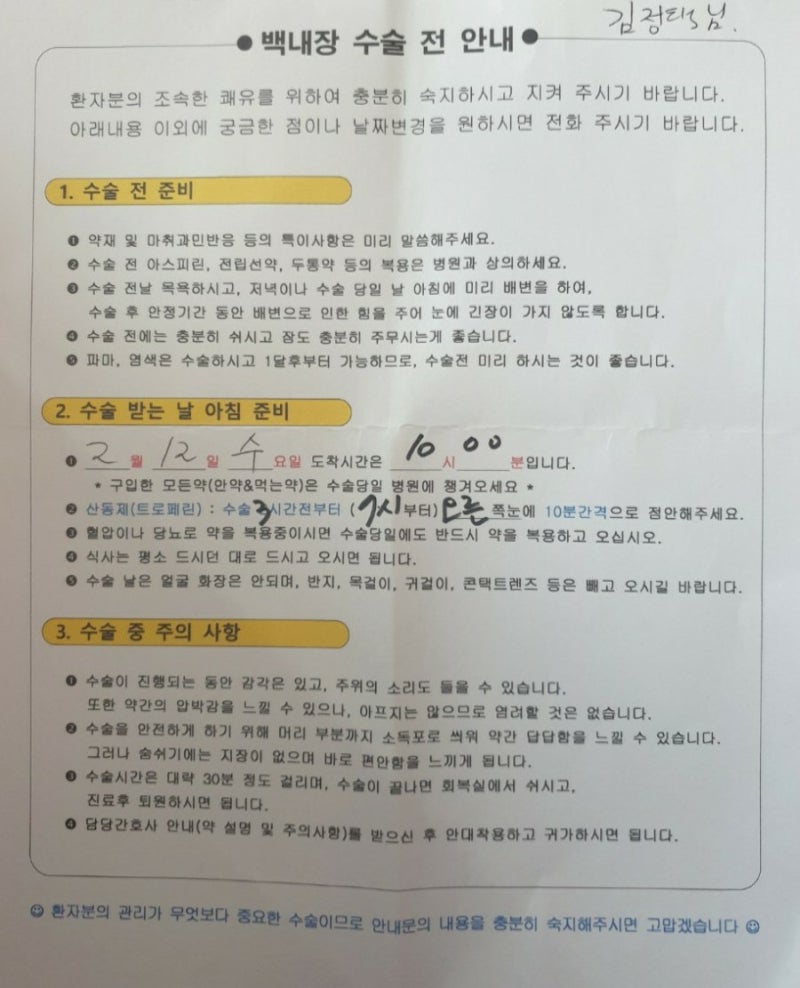 김정택님.
● 백내장 수술 전 안내 ●
환자분의 조속한 쾌유를 위하여 충분히 숙지하시고 지켜 주시기 바랍니다.
아래내용 이외에 궁금한 점이나 날짜변경을 원하시면 전화 주시기 바랍니다.
1. 수술 전 준비
❶ 약재 및 마취과민반응 등의 특이사항은 미리 말씀해주세요.
❷ 수술 전 아스피린, 전립선약, 두통약 등의 복용은 병원과 상의하세요.
❸ 수술 전날 목욕하시고, 저녁이나 수술 당일 날 아침에 미리 배변을 하여,
수술 후 안정기간 동안 배변으로 인한 힘을 주어 눈에 긴장이 가지 않도록 합니다.
❹ 수술 전에는 충분히 쉬시고 잠도 충분히 주무시는게 좋습니다.
❺ 파마, 염색은 수술하시고 1달후부터 가능하므로, 수술전 미리 하시는 것이 좋습니다.
2. 수술 받는 날 아침 준비
❶ 2월 12일 수요일 도착시간은 10시 00분입니다.
* 구입한 모든약(안약&먹는약)은 수술당일 병원에 챙겨오세요 *
❷ 산동제(트로페린) : 수술3시간전부터 (7시부터) 오른쪽눈에 10분간격으로 점안해주세요.
❸ 혈압이나 당뇨로 약을 복용중이시면 수술당일에도 반드시 약을 복용하고 오십시오.
❹ 식사는 평소 드시던 대로 드시고 오시면 됩니다.
❺ 수술 날은 얼굴 화장은 안되며, 반지, 목걸이, 귀걸이, 콘택트렌즈 등은 빼고 오시길 바랍니다.
3. 수술 중 주의 사항
❶ 수술이 진행되는 동안 감각은 있고, 주위의 소리도 들을 수 있습니다.
또한 약간의 압박감을 느낄 수 있으나, 아프지는 않으므로 염려할 것은 없습니다.
❷ 수술을 안전하게 하기 위해 머리 부분까지 소독포로 씌워 약간 답답함을 느낄 수 있습니다.
그러나 숨쉬기에는 지장이 없으며 바로 편안함을 느끼게 됩니다.
❸ 수술시간은 대략 30분 정도 걸리며, 수술이 끝나면 회복실에서 쉬시고,
진료후 퇴원하시면 됩니다.
❹ 담당간호사 안내(약 설명 및 주의사항)를 받으신 후 안대착용하고 귀가하시면 됩니다.
☺ 환자분의 관리가 무엇보다 중요한 수술이므로 안내문의 내용을 충분히 숙지해주시면 고맙겠습니다 ☺